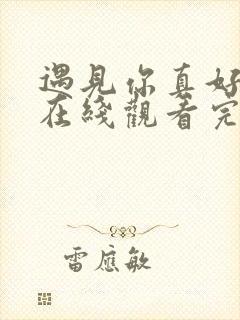 遇見你真好
在綫觀看完
雷應敏